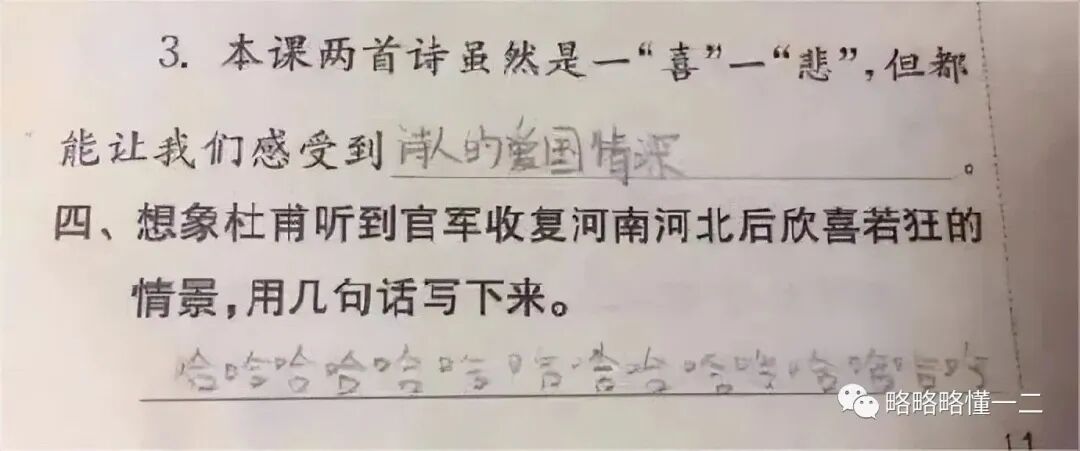 3. 本课两首诗虽然是一“喜”一“悲”,但都
能让我们感受到诗人的爱国情深。
四、想象杜甫听到官军收复河南河北后欣喜若狂的
情景,用几句话写下来。
哈哈哈哈哈哈哈哈哈哈哈哈哈哈哈
略略略懂一二
11